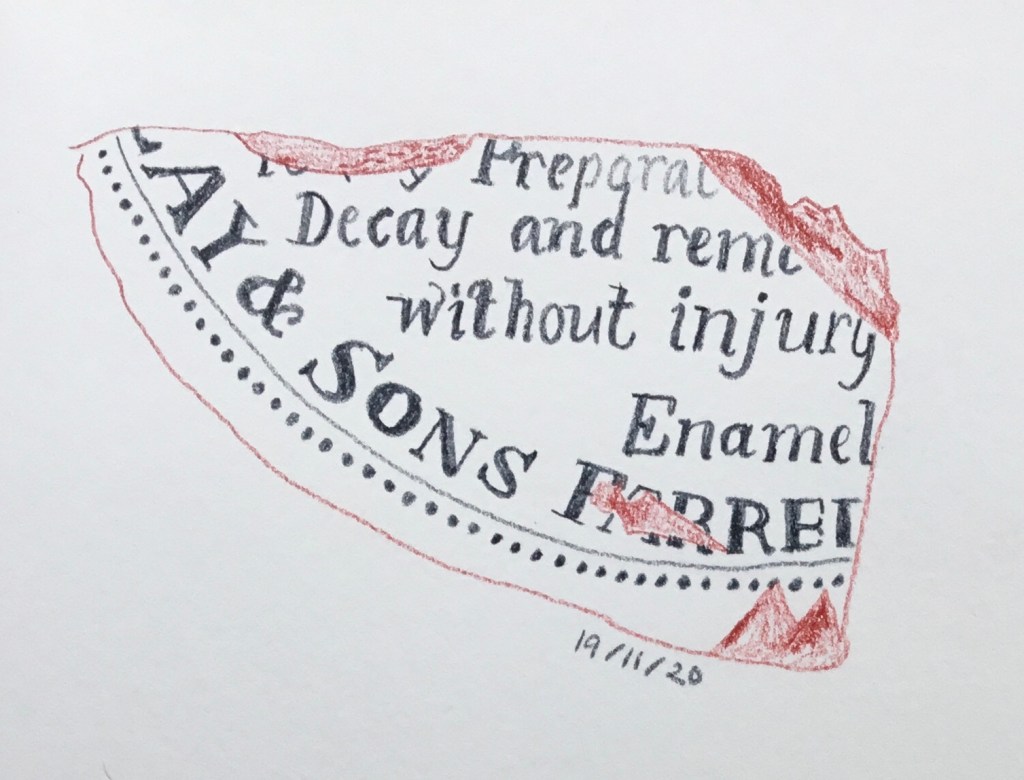 Preparat
Decay and remo
without injury
Enamel
AY & SONS FARREI
19/11/20